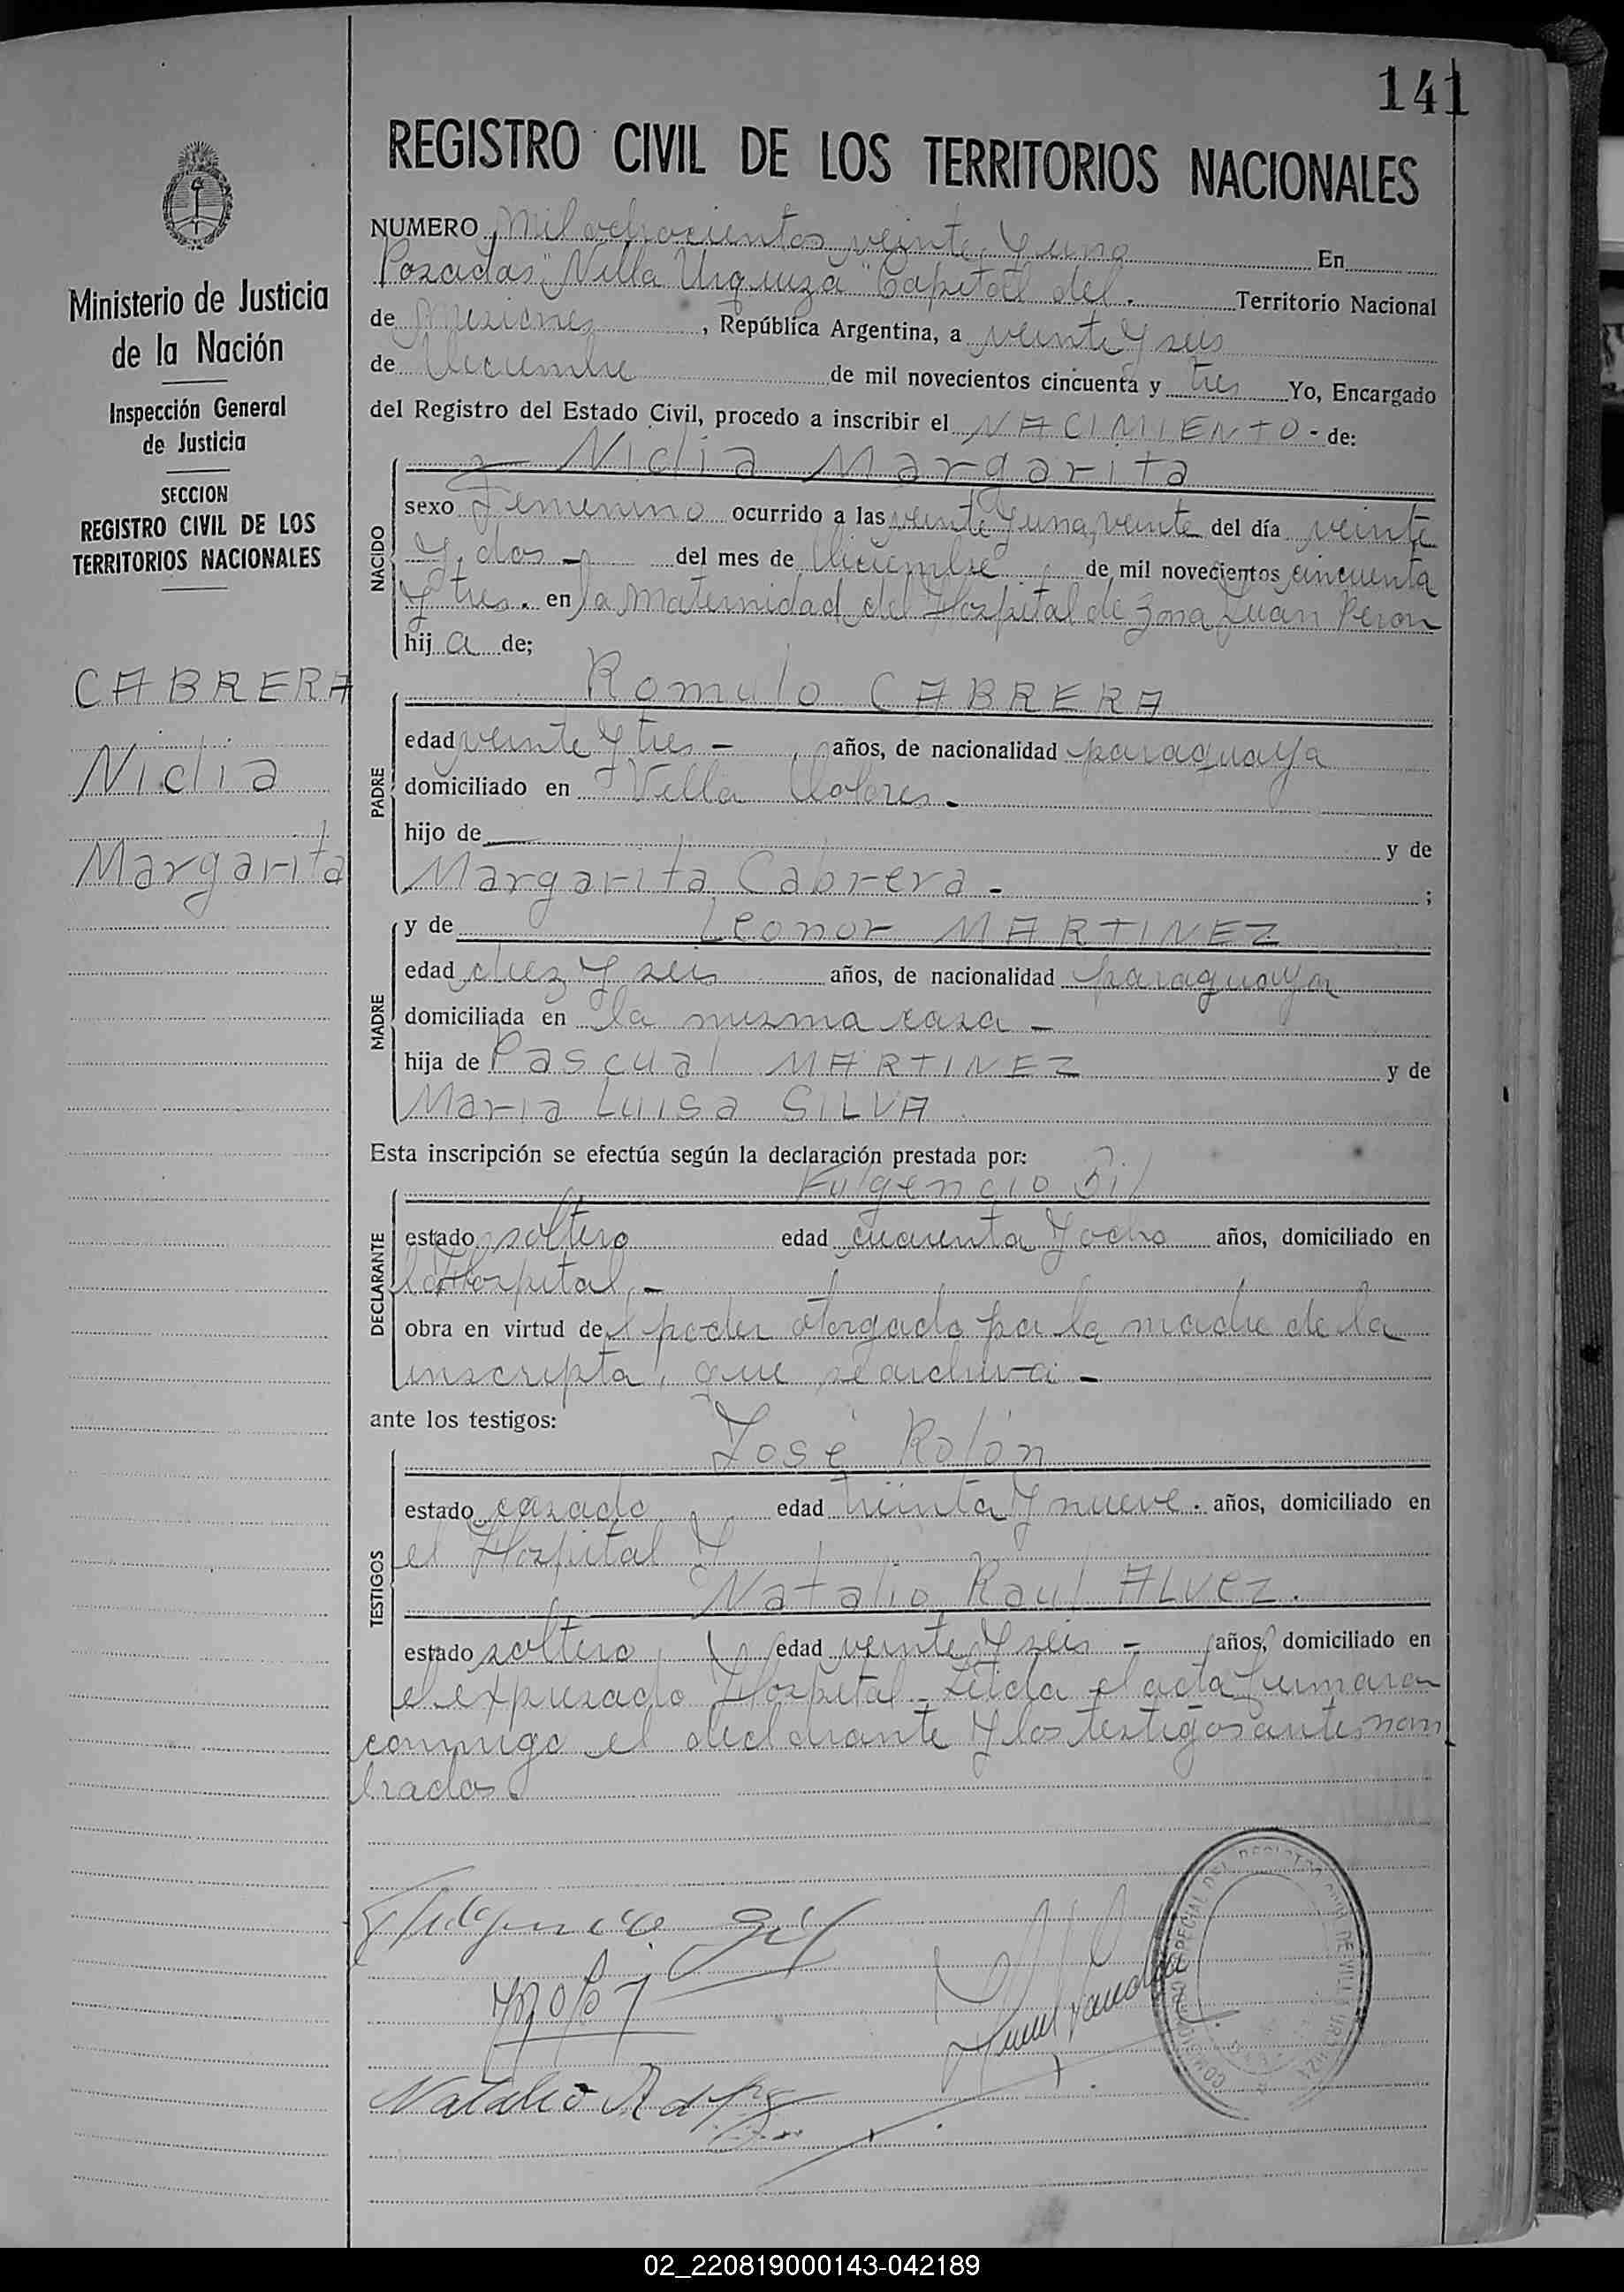 141
REGISTRO CIVIL DE LOS TERRITORIOS NACIONALES
Ministerio de Justicia
de la Nación
Inspección General
de Justicia
SECCION
REGISTRO CIVIL DE LOS
TERRITORIOS NACIONALES
CABRERA
Nidia
Margarita
NUMERO Mil ochocientos veinte y uno En
Posadas "Villa Urquiza" Capital del. Territorio Nacional
de Misiones, República Argentina, a veinte y seis
de Diciembre de mil novecientos cincuenta y tres Yo, Encargado
del Registro del Estado Civil, procedo a inscribir el NACIMIENTO - de:
NACIDO
Nidia Margarita
sexo Femenino ocurrido a las veinte y una, veinte del día veinte
y dos - del mes de Diciembre de mil novecientos cincuenta
y tres. en la Maternidad del Hospital de Zona Juan Peron
hij a de;
PADRE
Romulo CABRERA
edad veinte y tres - años, de nacionalidad paraguaya
domiciliado en Villa Dolores. -
hijo de — y de
Margarita Cabrera - ;
MADRE
y de Leonor MARTINEZ
edad diez y seis años, de nacionalidad paraguaya
domiciliada en la misma casa -
hija de Pascual MARTINEZ y de
Maria Luisa SILVA
Esta inscripción se efectúa según la declaración prestada por:
DECLARANTE
Fulgencio Gil
estado soltero edad cuarenta y ocho años, domiciliado en
Hospital. -
obra en virtud del poder otorgado por la madre de la
inscripta, que se archiva -
ante los testigos:
TESTIGOS
José Rolón
estado casado edad treinta y nueve. años, domiciliado en
el Hospital y
Natalio Raul ALVEZ.
estado soltero, edad veinte y seis - años, domiciliado en
el expresado Hospital - Leída el acta firmaran
conmigo el declarante y los testigos antes nom
brados.
Fulgencio Gil
Natalio R
COMISIONADO ESPECIAL DEL REGISTRO CIVIL DE VILLA URQUIZA
02_220819000143-042189